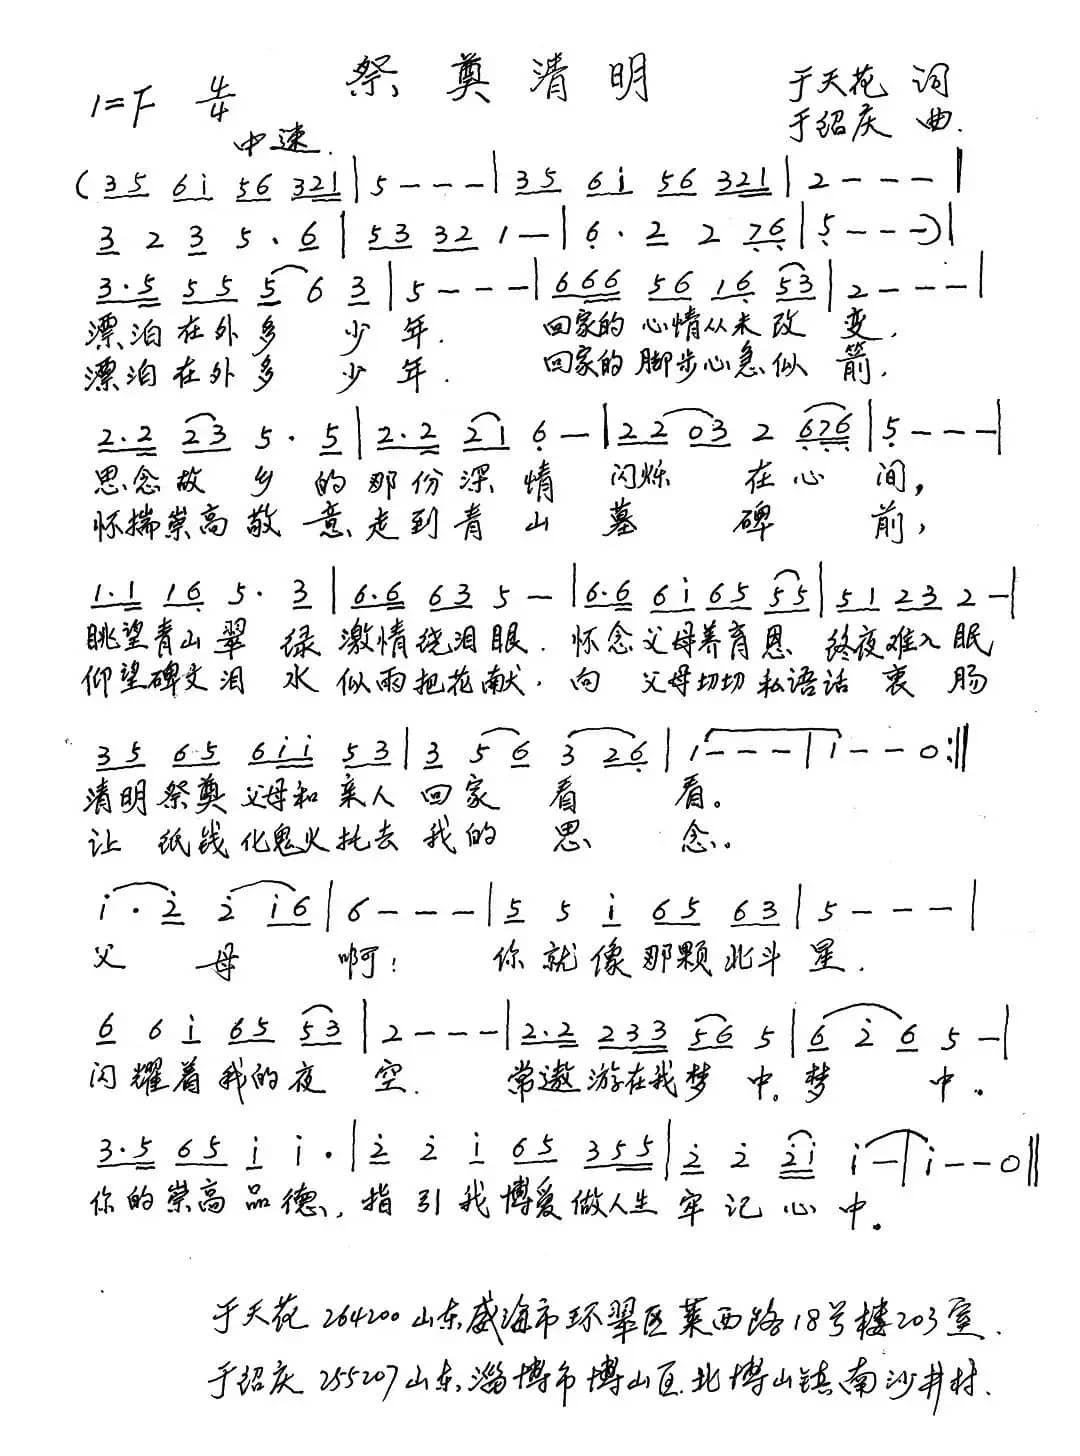 祭奠清明
于天花 词
1=F 4/4
于绍庆 曲.
中速.
(35 6i 56 321|5---|35 6i 56 321|2---|
3 2 3 5·6|53 32 1-|6·2 2 76|5---)|
3·5 55 5 6 3|5---|666 56 16 53|2---|
漂泊在外多 少年. 回家的心情从未改 变,
漂泊在外多 少年. 回家的脚步心急似 箭,
2·2 23 5·5|2·2 21 6-|22 03 2 676|5---|
思念故乡的那份深情 闪烁 在心间,
怀揣崇高敬意走到青山墓 碑 前,
1·1 16 5·3|6·6 63 5-|6·6 6i 65 55|51 23 2-|
眺望青山翠绿 激情绕泪眼. 怀念父母养育恩 终夜难入眠
仰望碑文泪水似雨把花献. 向父母切切私语话衷肠
35 65 6ii 53|3 5 6 3 26|1---|i--0:||
清明祭奠父母和亲人回家看 看。
让纸钱化鬼火托去我的思 念。
i·2 2 i6|6---|5 5 i 65 63|5---|
父 母 啊! 你就像那颗北斗星.
6 6 i 65 53|2---|2·2 233 56 5|6 2 6 5-|
闪耀着我的夜 空. 常遨游在我梦中。梦 中。
3·5 65 i i·|2 2 i 65 355|2 2 2i i-|i--0||
你的崇高品德, 指引我博爱做人生牢记心中。
于天花 264200山东威海市环翠区莱西路18号楼203室.
于绍庆 255207山东淄博市博山区北博山镇南沙井村.